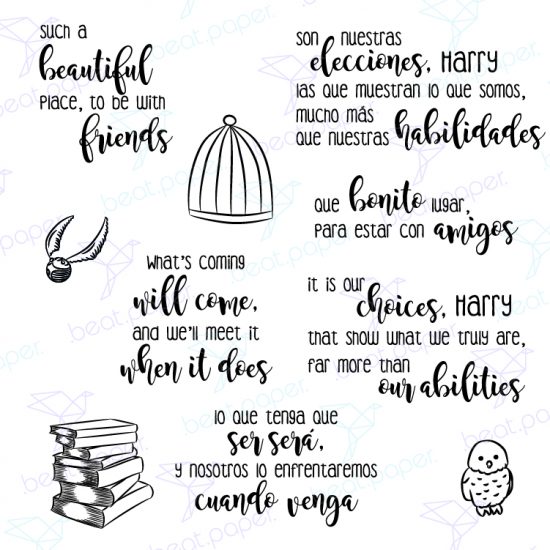 such a
beautiful
place, to be with
friends
son nuestras
elecciones, Harry
las que muestran lo que somos,
mucho más
que nuestras habilidades
que bonito lugar,
para estar con amigos
what's coming
will come,
and we'll meet it
when it does
it is our
choices, Harry
that show what we truly are,
far more than
our abilities
lo que tenga que
ser será,
y nosotros lo enfrentaremos
cuando venga
beat.paper.
beat.paper.
beat.paper.
beat.paper.
beat.paper.
beat.paper.
beat.paper.